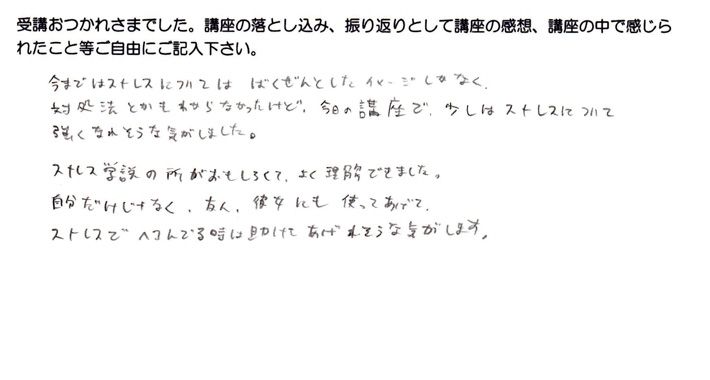 受講おつかれさまでした。講座の落とし込み、振り返りとして講座の感想、講座の中で感じら
れたこと等ご自由にご記入下さい。
今まではストレスについては ばくぜんとしたイメージしかなく、
対処法とかもわからなかったけど、今日の講座で、少しはストレスについて
強くなれそうな気がしました。
ストレス学説の所がおもしろくて、よく理解できました。
自分だけじゃなく、友人、彼女にも使ってあげて、
ストレスでヘコんでる時は助けてあげれそうな気がします。